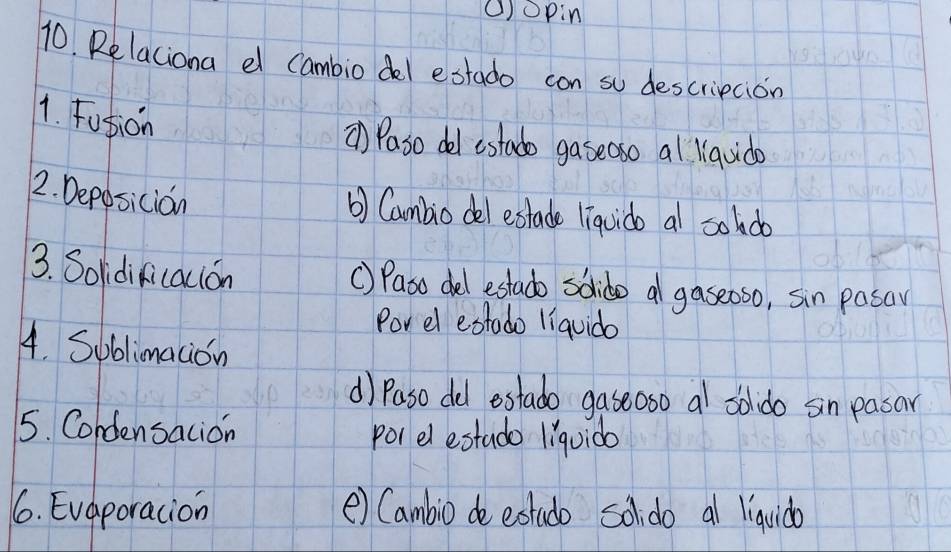 a) Spin
10. Relaciona el cambio del estado con su descripción
1. Fusión
a) Paso del estado gaseoso al líquido
2. Deposición
b) Cambio del estado líquido al solido
3. Solidificación
c) Paso del estado sólido al gaseoso, sin pasar
Por el estado líquido
4. Sublimación
d) Paso del estado gaseoso al sólido sin pasar
por el estado líquido
5. Condensación
6. Evaporación
e) Cambio de estado sólido al líquido